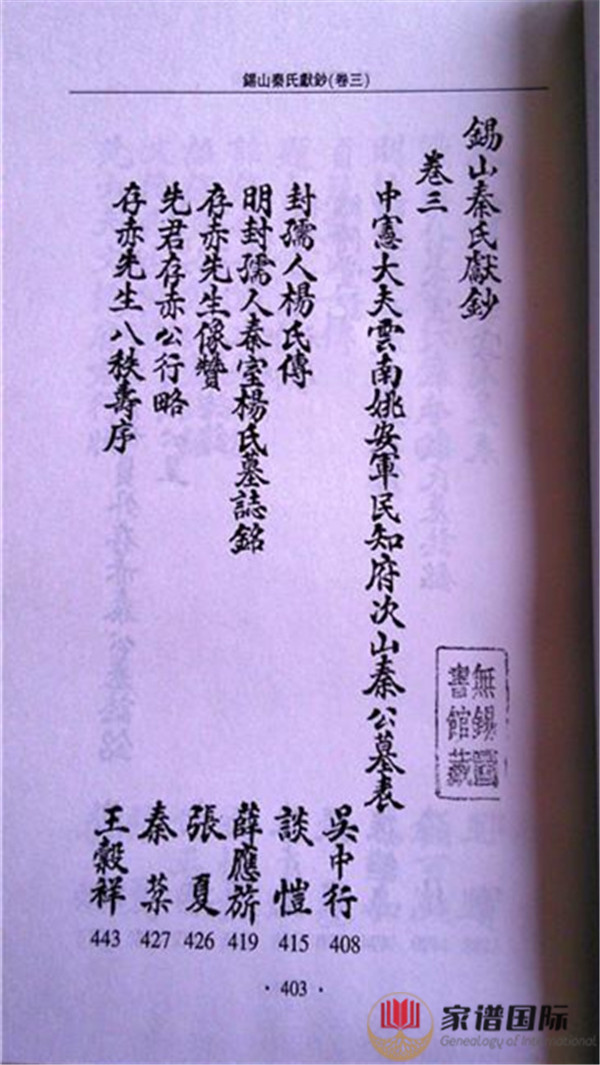 錫山秦氏獻鈔(卷三)
錫山秦氏獻鈔
卷三
中憲大夫雲南姚安軍民知府次山秦公墓表
吳中行 408
封孺人楊氏傳
談愷 415
明封孺人秦室楊氏墓誌銘
薛應旂 419
存赤先生像贊
張夏 426
先君存赤公行略
秦 427
存赤先生八秩壽序
王穀祥 443
無錫圖
書館藏
· 403 ·
家谱国际
Genealogy of International